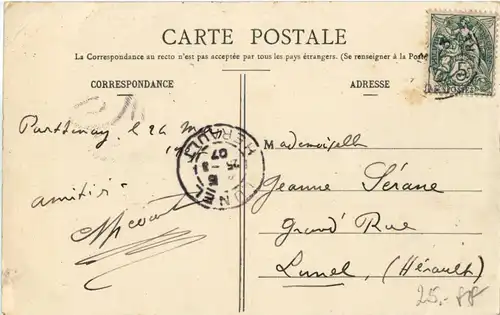 CARTE POSTALE
La Correspondance au recto n'est pas acceptée par tous les pays étrangers. (Se renseigner à la Poste
CORRESPONDANCE
ADRESSE
Parthenay, le 26
amitié
HERAULT
07
25
Mademoiselle
Jeanne Sérane
Grand' Rue
Lunel, (Hérault)
25.-